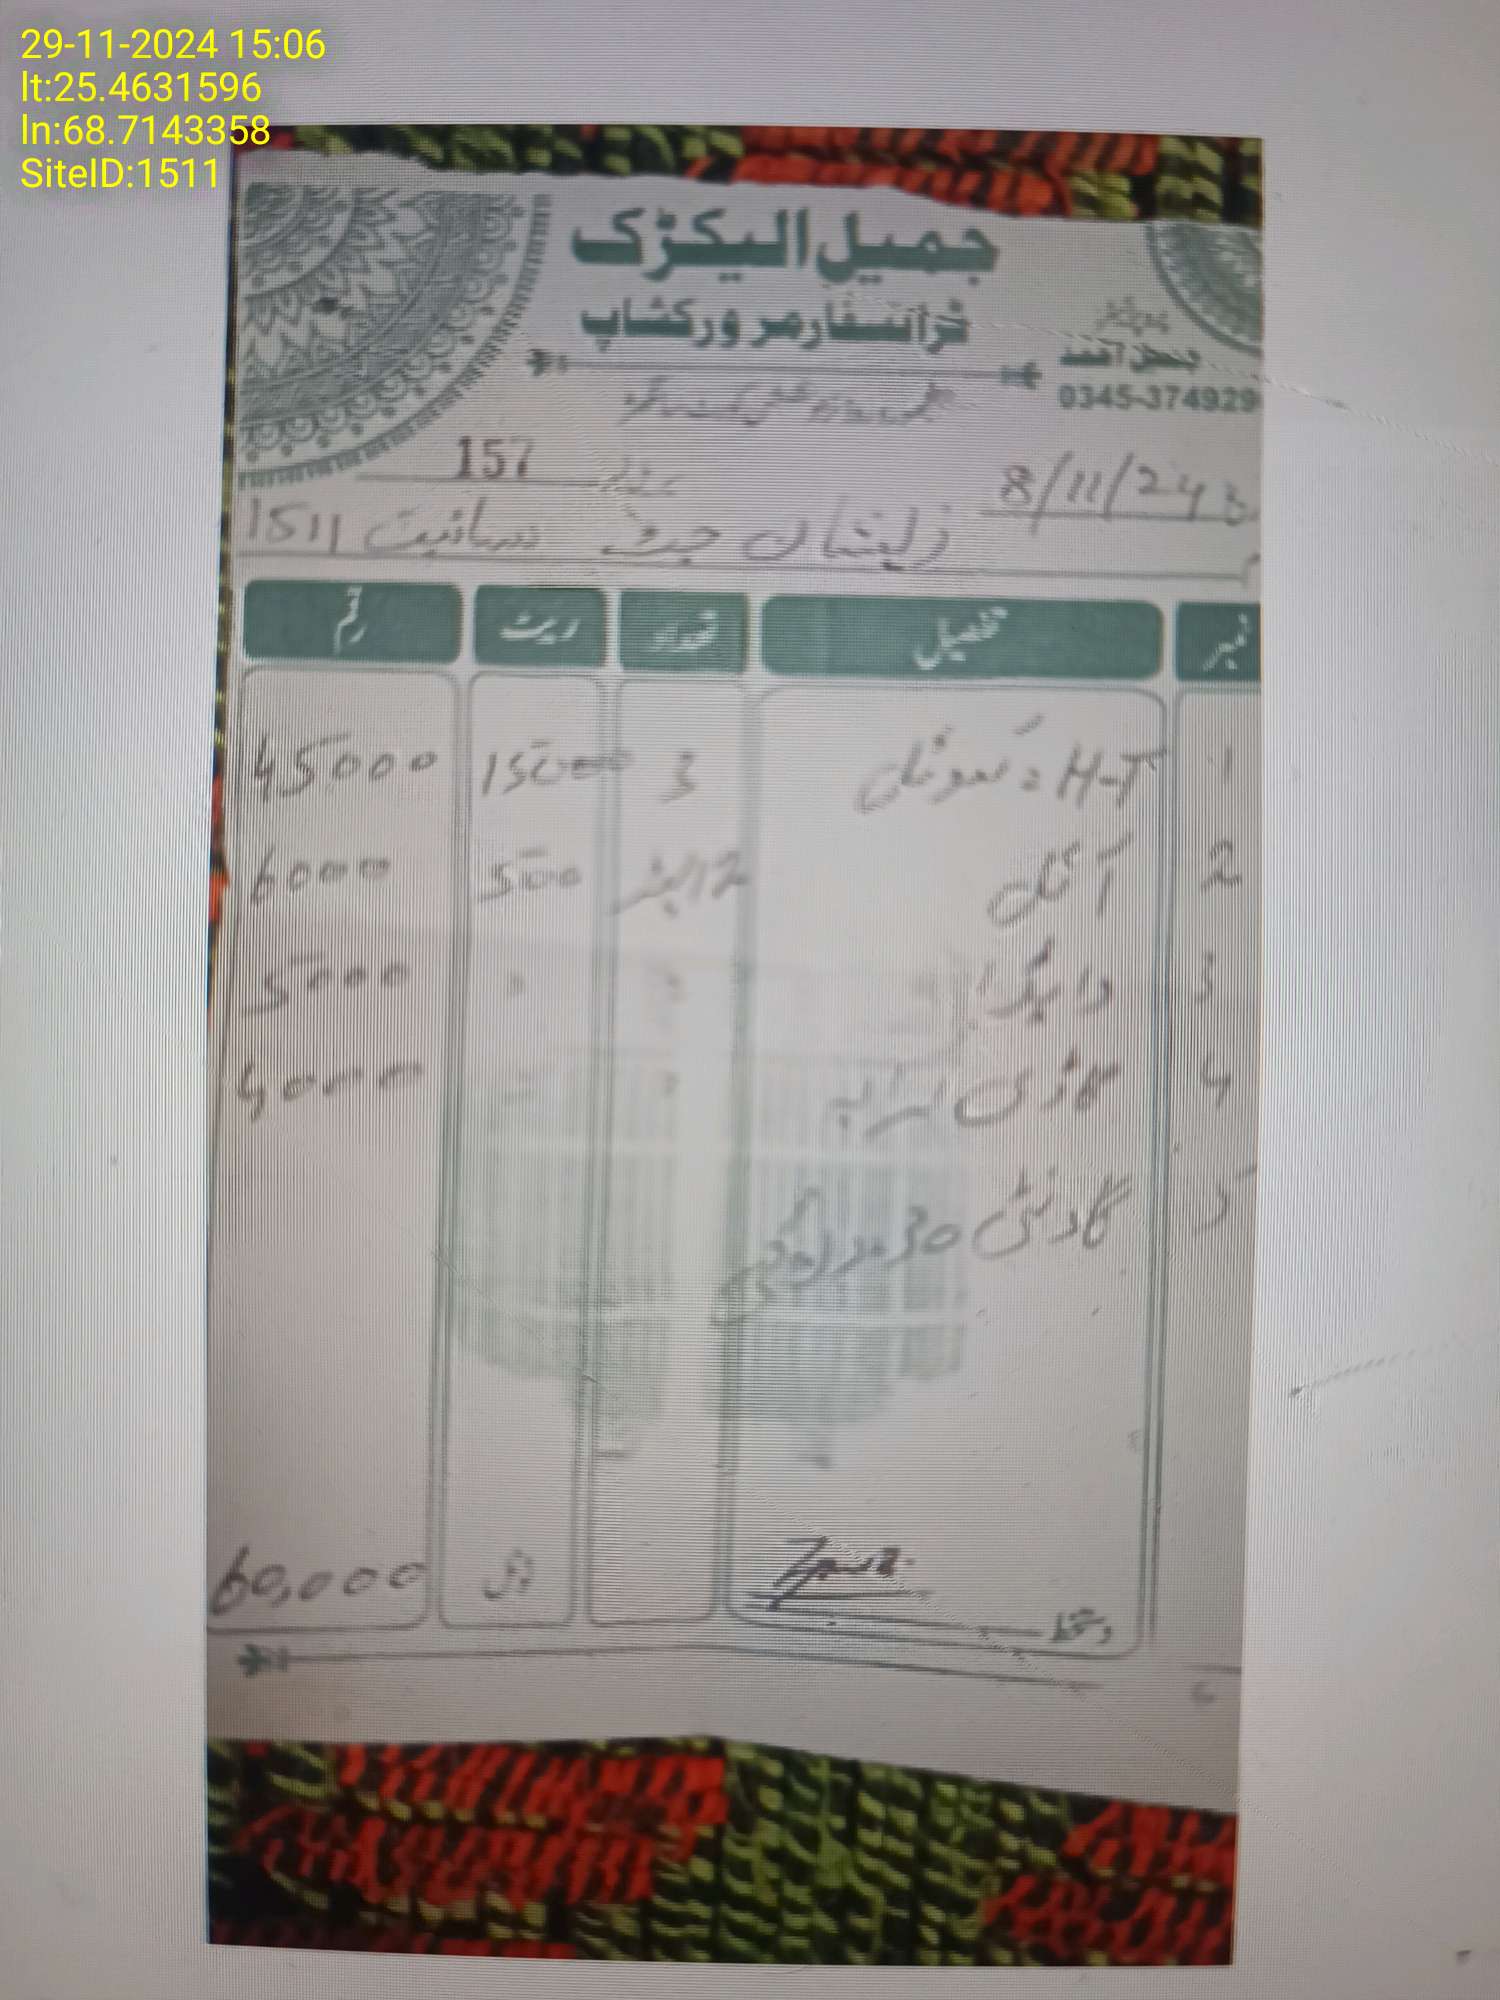 29-11-2024 15:06
lt:25.4631596
ln:68.7143358
SiteID:1511
جمیل الیکڑک
ٹرانسفارمر ورکشاپ
0345-374929
157
8/11/24
ذیشان جٹ سائیٹ 1511
نمبر تفصیل تعداد ریٹ رقم
H-T کوئل 3 15000 45000
2 آئل 12 لیٹر 500 6000
3 5000
4 گاڑی کرایہ 4000
5 گارنٹی 30
60,000
دستخط